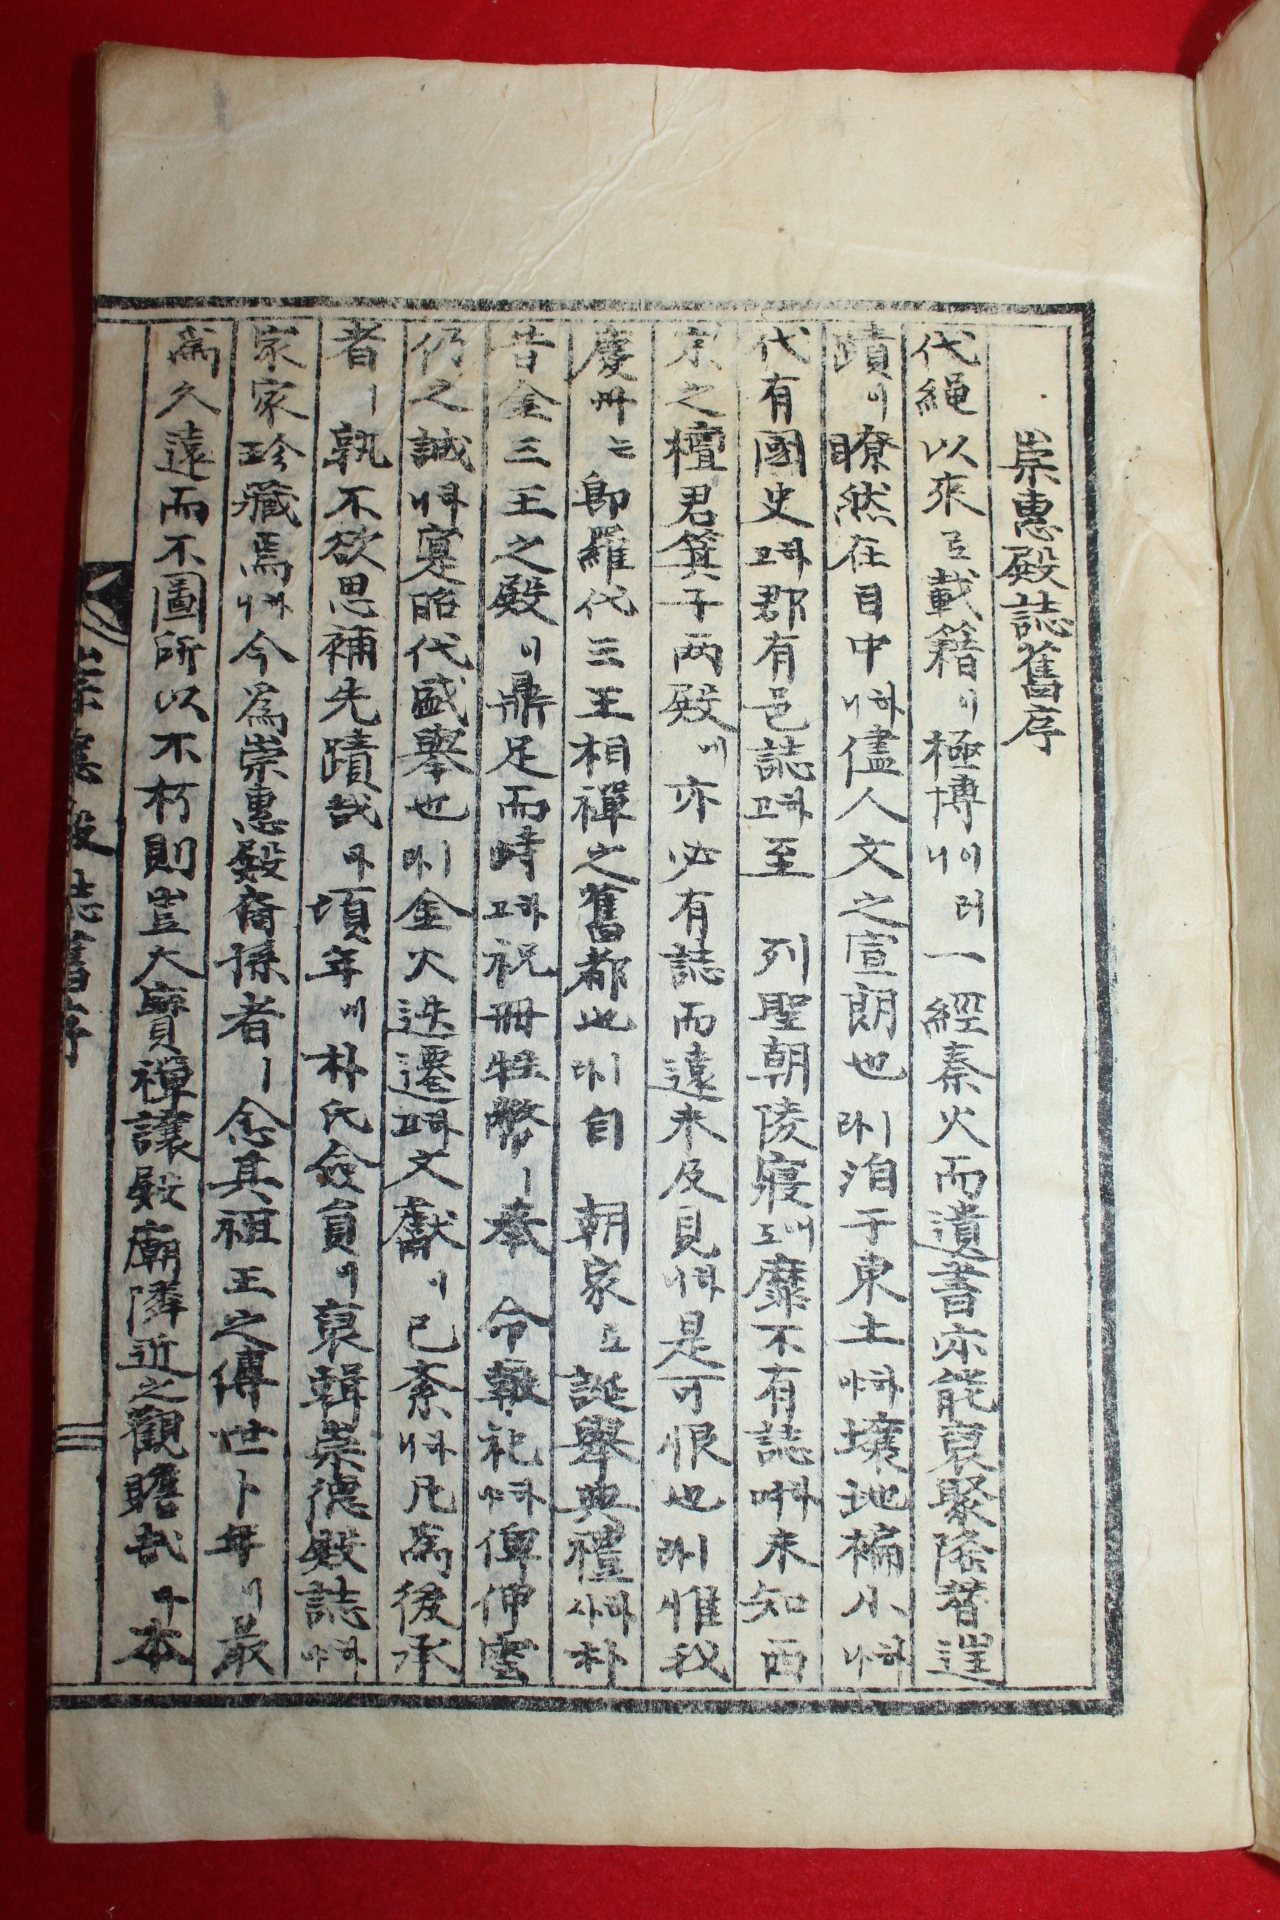 崇惠殿誌舊序
代繩以來로載籍이極博이러니一經秦火而遺書亦能裒聚隆替遑
蹟이瞭然在目中하니儘人文之宣朗也라ㅣ洎于東土하야壤地褊小하나
代有國史하고郡有邑誌하고至 列聖朝陵寢도애靡不有誌며未知西
京之檀君箕子两殿에亦必有誌而遠未及見하니是可恨也라ㅣ惟我
慶州는即羅代三王相禪之舊都也라ㅣ自 朝家로誕舉典禮하사朴
昔金三王之殿이鼎足而峙하고祝冊牲幣ㅣ奉 令報祀하야俾伸雲
仍之誠케하니寔昭代盛擧也라ㅣ金火迭遷하고文獻이已紊하니凡爲後承
者ㅣ孰不欲思補先蹟哉아頃年에朴氏僉員이裒輯崇德殿誌하야
家家珍藏焉하니今爲崇惠殿裔孫者ㅣ念其祖王之傳世卜年이最
爲久遠而不圖所以不朽則豈大寶禪讓殿廟隣近之觀瞻哉아本
崇惠殿誌舊序